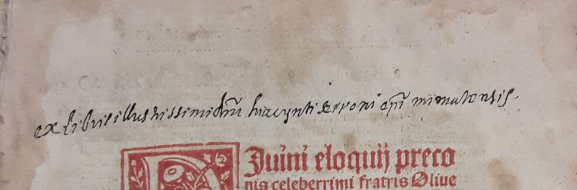 ex libris illustrissimi dn̄i hiacynti serroni ep̄i mimatensis.
DIuini eloquij preco
nis celeberrimi fratris Oliue